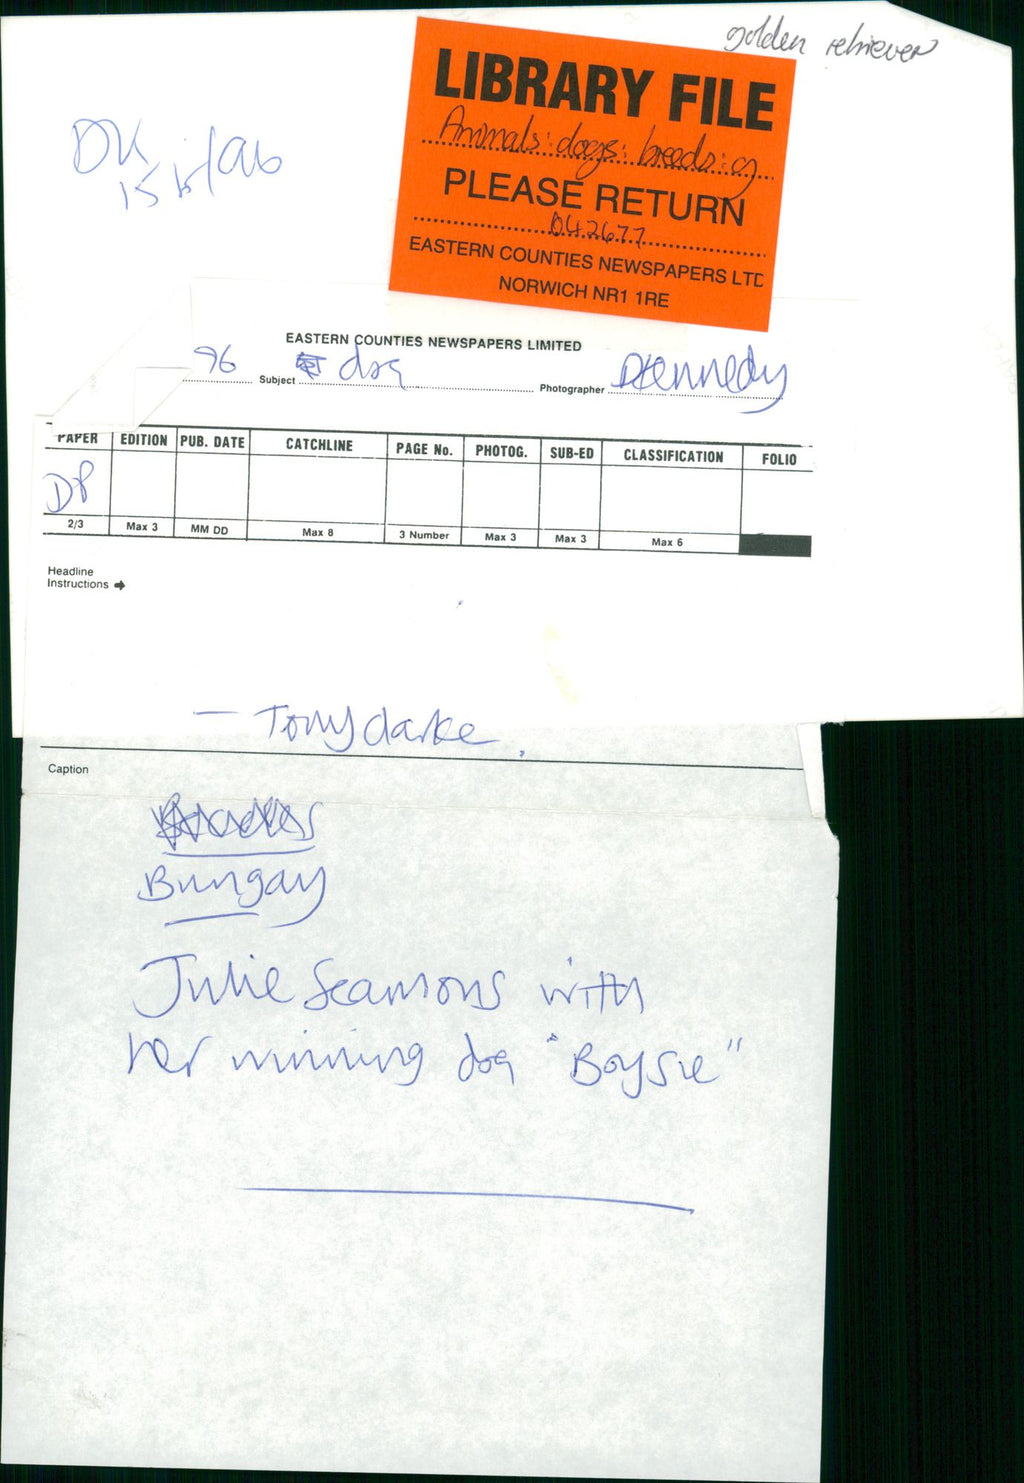 golden retriever
LIBRARY FILE
Animals: dogs: breeds: g
PLEASE RETURN
042677
EASTERN COUNTIES NEWSPAPERS LTD
NORWICH NR1 1RE
DK
15
EASTERN COUNTIES NEWSPAPERS LIMITED
96 Subject dog Photographer DKennedy
PAPER EDITION PUB. DATE CATCHLINE PAGE No. PHOTOG. SUB-ED CLASSIFICATION FOLIO
DP
2/3 Max 3 MM DD Max 8 3 Number Max 3 Max 3 Max 6
Headline
Instructions →
– Tony Clarke
Caption
Bungay
Julie Seamons with
her winning dog "Boysie"